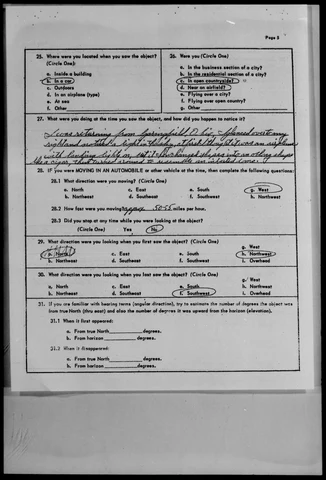 Page 3
25. Where were you located when you saw the object?
(Circle One)
a. Inside a building
b. In a car
c. Outdoors
d. In an airplane (type)
e. At sea
f. Other
26. Were you (Circle One)
a. In the business section of a city?
b. In the residential section of a city?
c. In open countryside?
d. Near an airfield?
e. Flying over a city?
f. Flying over open country?
g. Other
27. What were you doing at the time you saw the object, and how did you happen to notice it?
I was returning from Springfield O. I glanced over to my
right and noticed a light in the sky, at first I thought it was an airplane
with landing lights on, but it changed shapes into an oblong shape
like a cigar, then it
28. If you were MOVING IN AN AUTOMOBILE or other vehicle at the time, then complete the following questions:
28.1 What direction were you moving? (Circle One)
a. North
b. Northeast
c. East
d. Southeast
e. South
f. Southwest
g. West
h. Northwest
28.2 How fast were you moving? appox 50-55 miles per hour.
28.3 Did you stop at any time while you were looking at the object?
(Circle One) Yes No
29. What direction were you looking when you first saw the object? (Circle One)
a. North
b. Northeast
c. East
d. Southeast
e. South
f. Southwest
g. West
h. Northwest
i. Overhead
30. What direction were you looking when you last saw the object? (Circle One)
a. North
b. Northeast
c. East
d. Southeast
e. South
f. Southwest
g. West
h. Northwest
i. Overhead
31. If you are familiar with bearing terms (angular direction), try to estimate the number of degrees the object was
from true North (thru east) and also the number of degrees it was upward from the horizon (elevation).
31.1 When it first appeared:
a. From true North degrees.
b. From horizon degrees.
31.2 When it disappeared:
a. From true North degrees.
b. From horizon degrees.